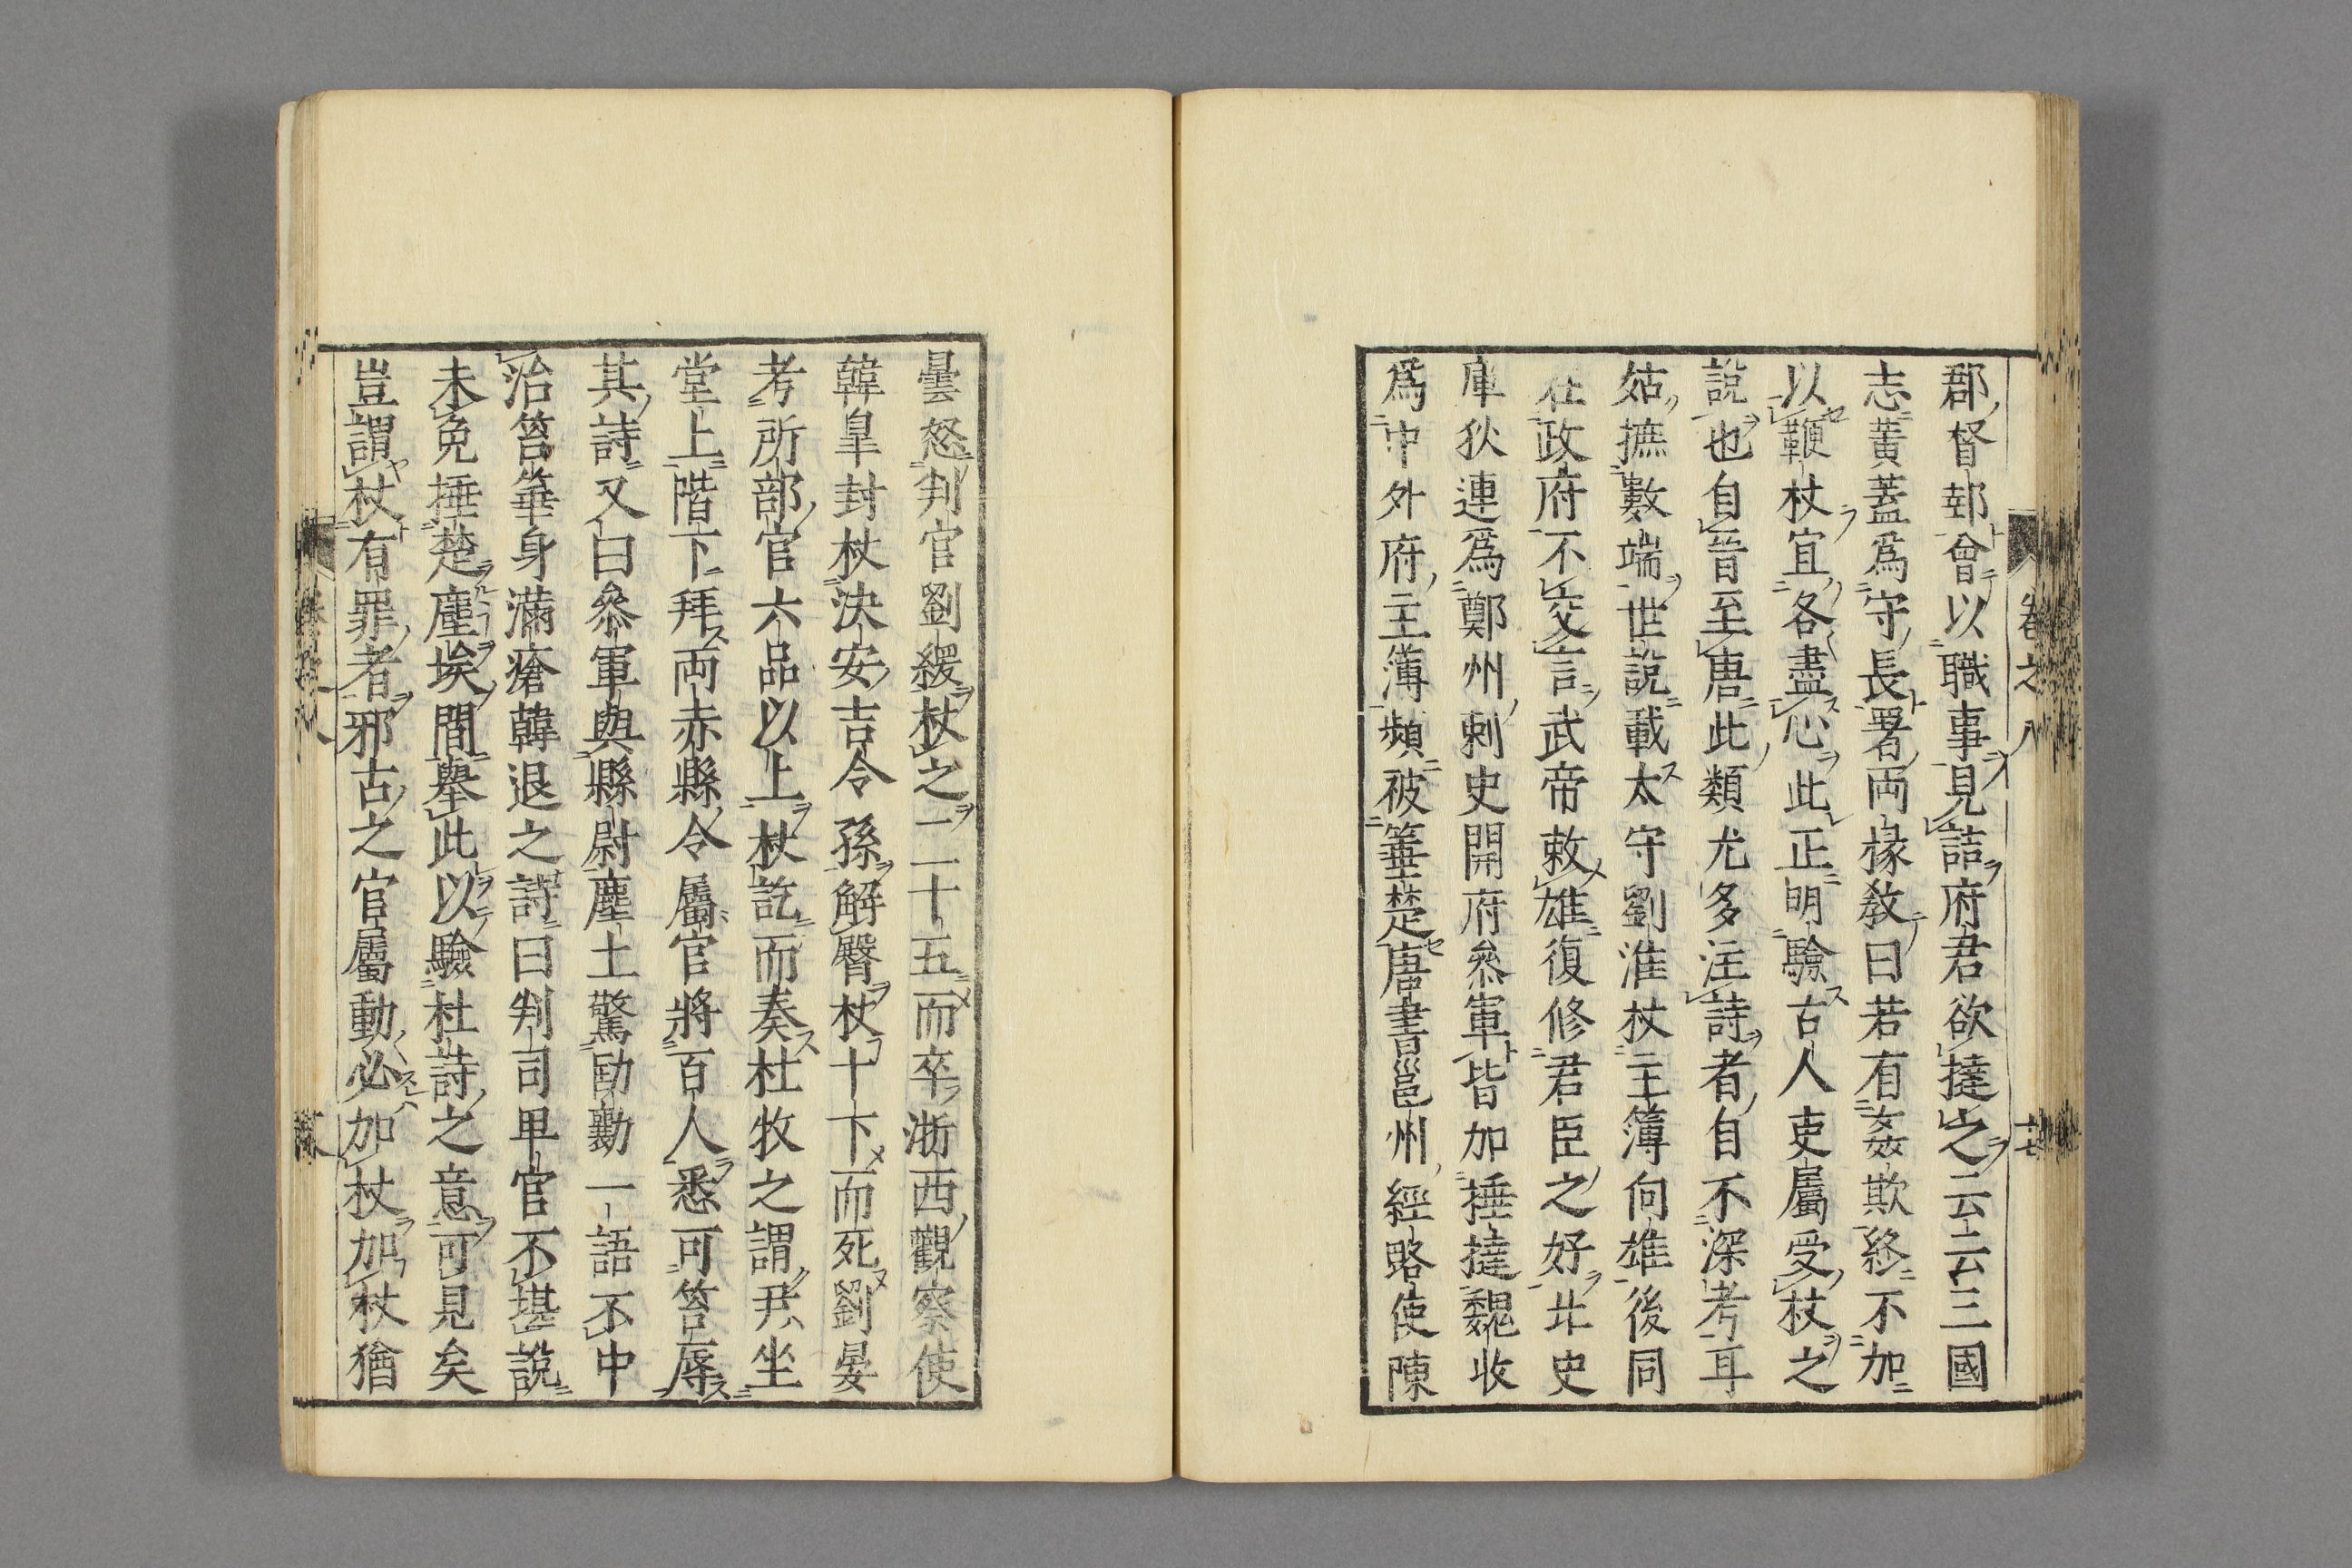 郡督郵會以職事見詰府君欲撻之云云三國
志黃蓋爲守長署兩掾教曰若有姦欺終不加
以鞭杖宜各盡心此正明驗古人吏屬受杖之
說也自晉至唐此類尤多注詩者自不深考耳
姑摭數端世說載太守劉淮杖主簿向雄後同
在政府不交言武帝敕雄復修君臣之好北史
庫狄連爲鄭州刺史開府叅軍皆加捶撻魏收
爲中外府主簿頻被箠楚唐書邕州經略使陳
曇怒判官劉緩杖之二十五而卒浙西觀察使
韓皐封杖決安吉令孫解臀杖十下而死劉晏
考所部官六品以上杖訖而奏杜牧之謂尹坐
堂上階下拜兩赤縣令屬官將百人悉可笞辱
其詩又曰叅軍與縣尉塵土驚劻勷一語不中
治笞箠身滿瘡韓退之詩曰判司卑官不堪說
未免捶楚塵埃間擧此以驗杜詩之意可見矣
豈謂杖有罪者邪古之官屬動必加杖加杖猶
卷之八
十七